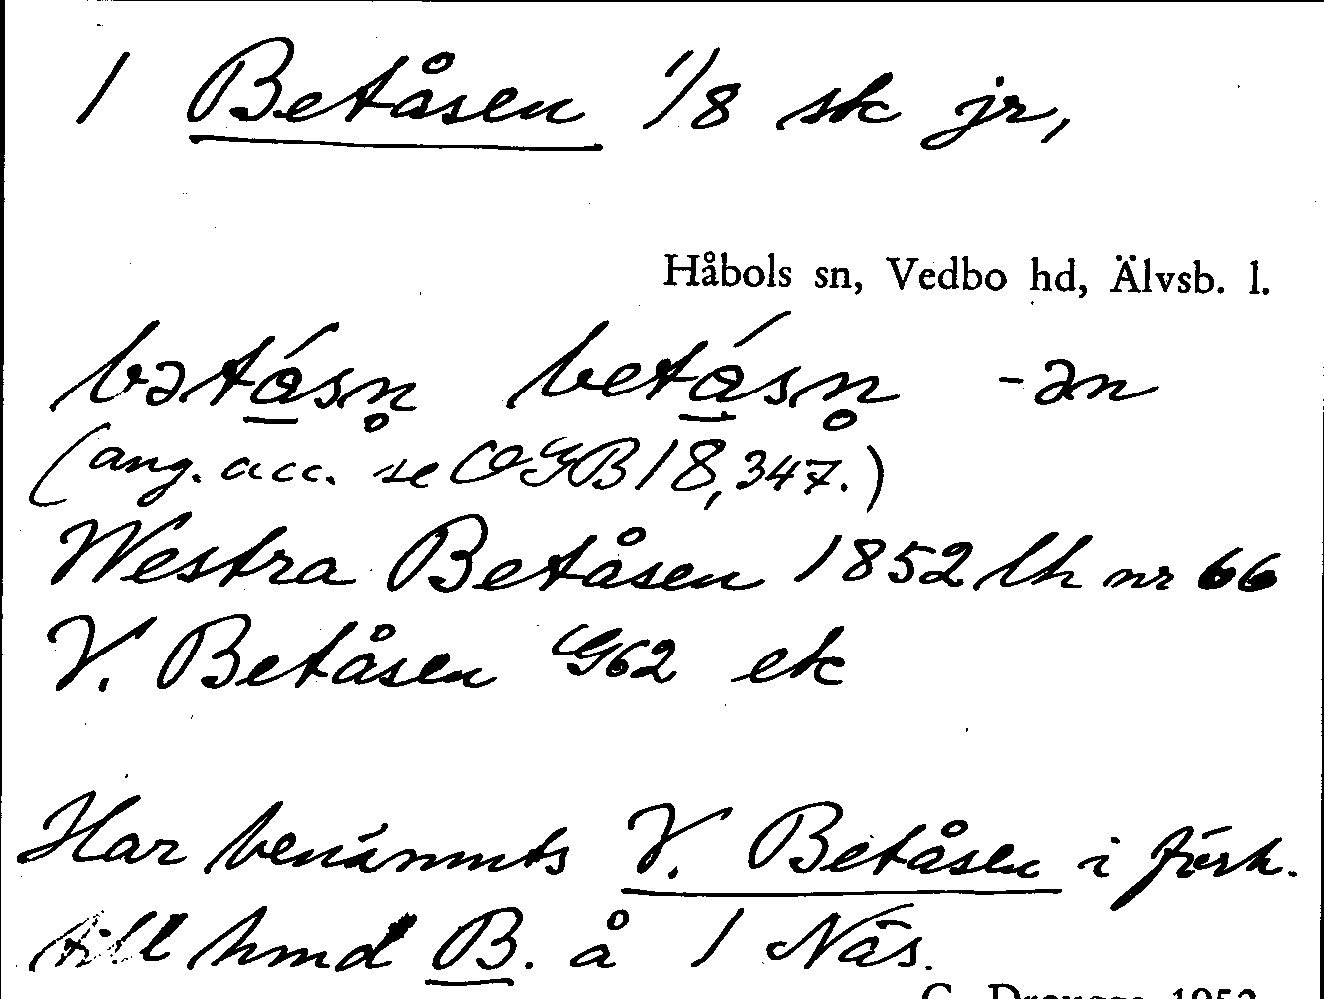 1 Betåsen 1/8 sk jr,
Håbols sn, Vedbo hd, Älvsb. l.
bətǻsn̥ betǻsn̥ -ən
(ang. acc. se OGB 18, 347.)
Westra Betåsen 1852 lh nr 66
V. Betåsen G62 ek
Har benämnts V. Betåsen i förh.
till hmd B. å 1 Näs.
1952